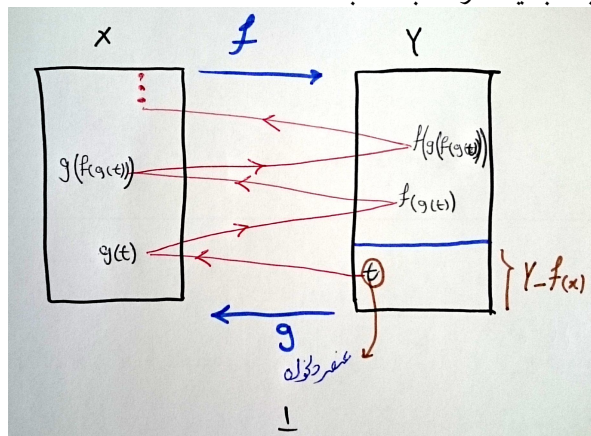 X f Y
f(g(f(g(t)))
g(f(g(t)))
f(g(t))
g(t)
t
Y_f(x)
g
عنصر دلخواه
1